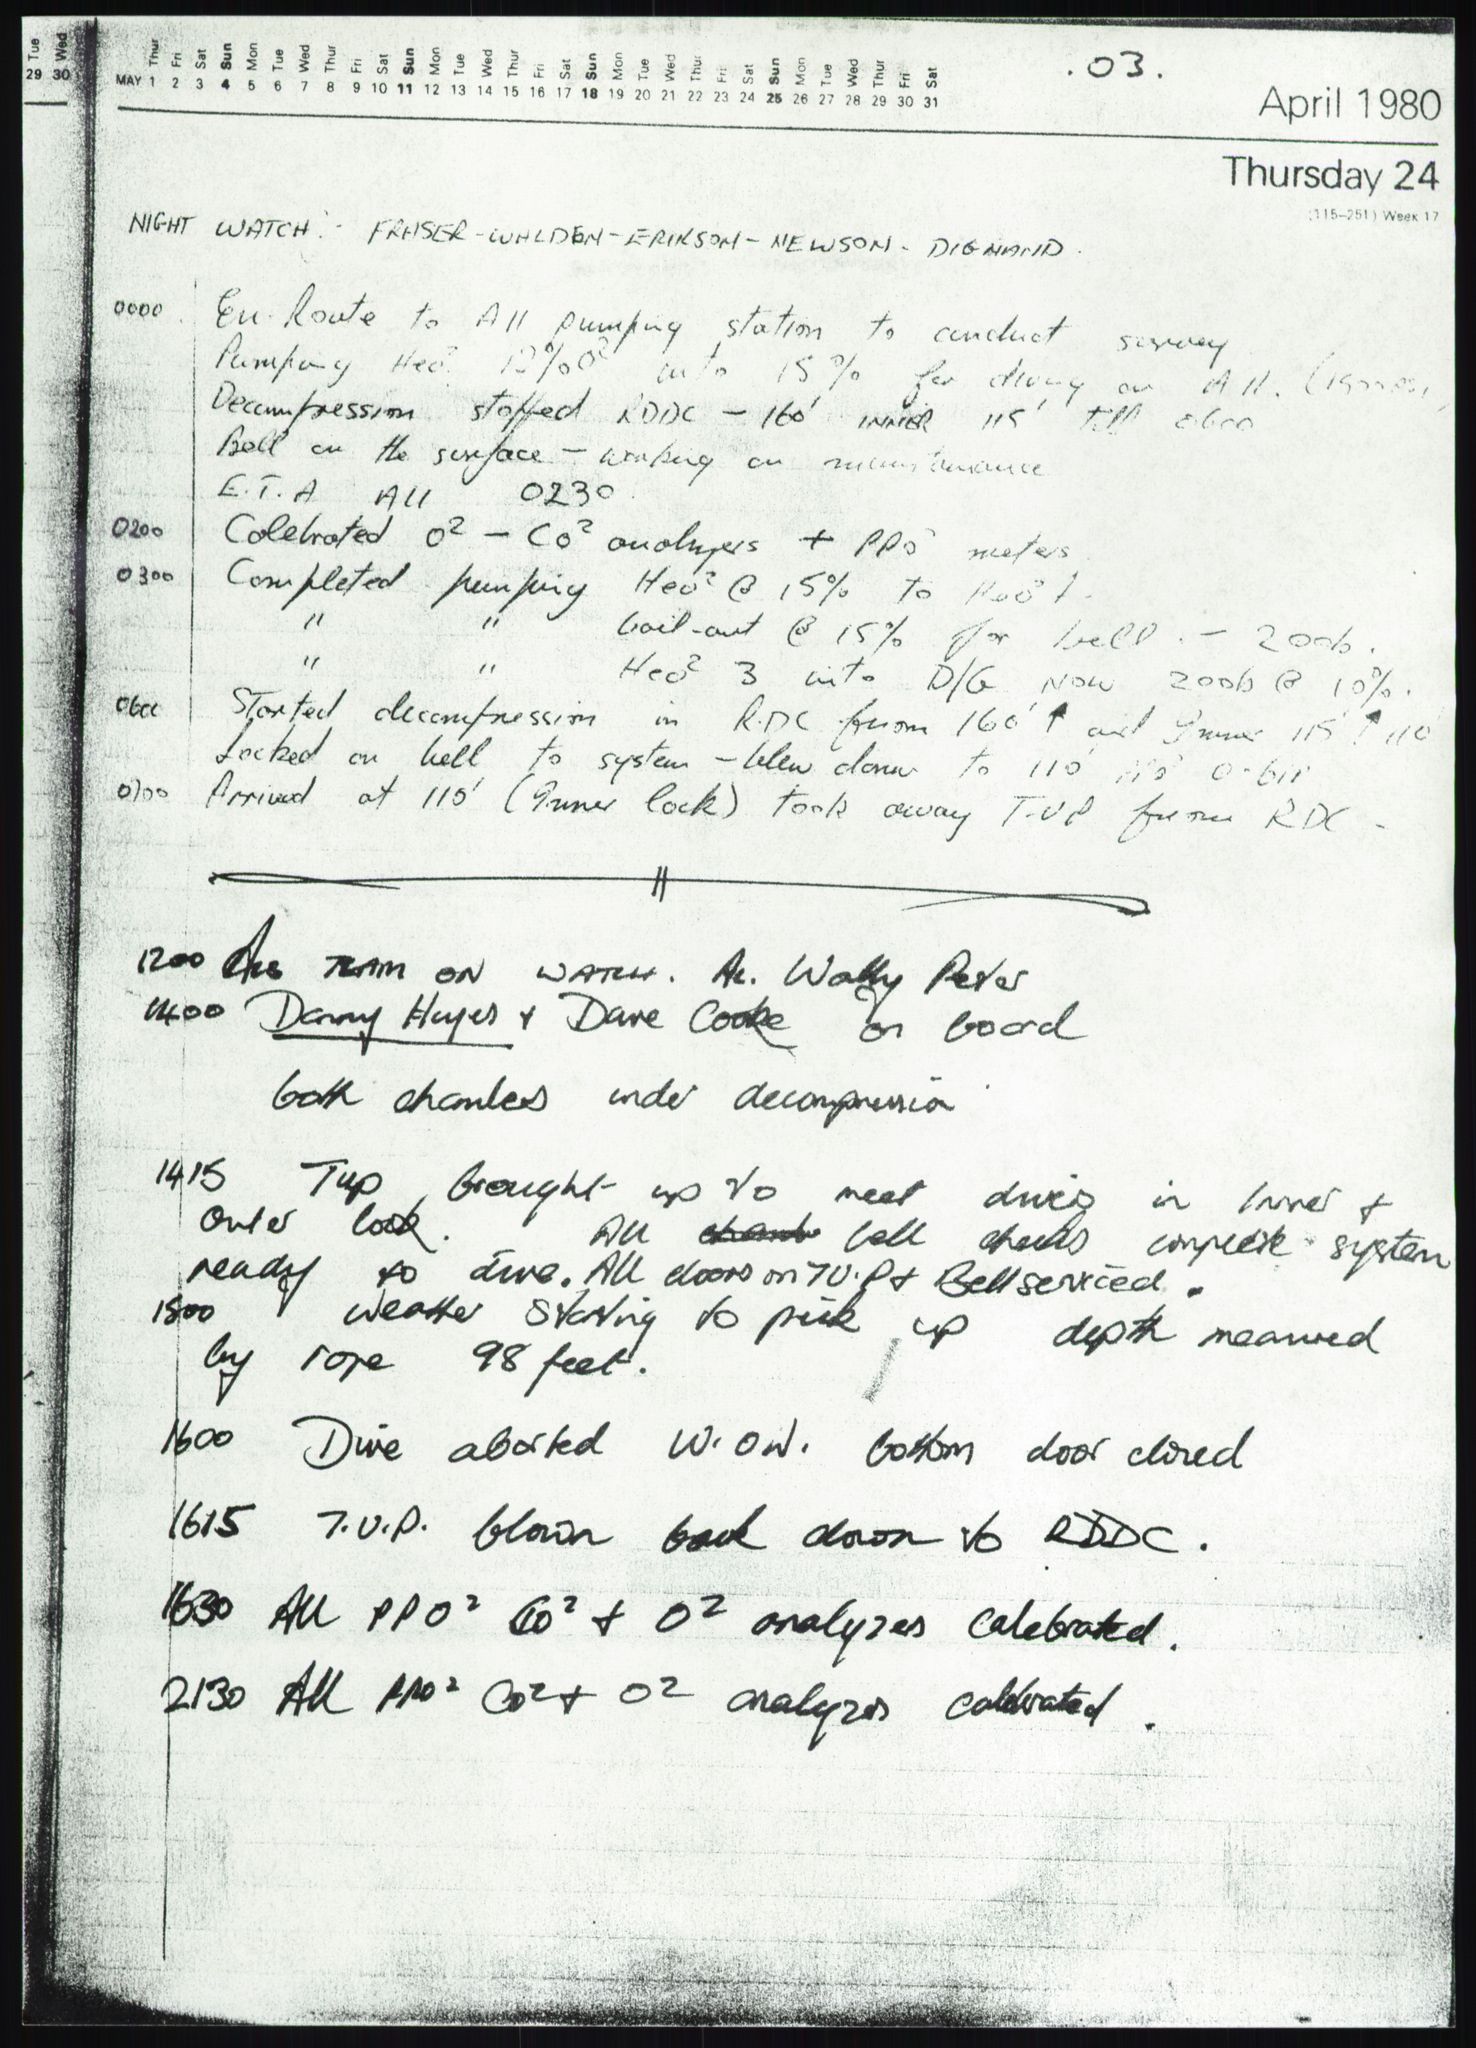 Tue Wed
29 30
Thur Fri Sat Sun Mon Tue Wed Thur Fri Sat Sun Mon Tue Wed Thur Fri Sat Sun Mon Tue Wed Thur Fri Sat Sun Mon Tue Wed Thur Fri Sat
MAY 1 2 3 4 5 6 7 8 9 10 11 12 13 14 15 16 17 18 19 20 21 22 23 24 25 26 27 28 29 30 31
.03.
April 1980
Thursday 24
(115-251) Week 17
NIGHT WATCH:- FRASER-WALDEN-ERIKSON-NEWSON-DIGNAND.
0000 En-Route to A11 pumping station to conduct survey
Pumping Heo² 12%O² into 15% for diving on A11.
Decompression stopped RDDC - 160' INNER 115' till 0600
Bell on the surface - working on maintanance
E.T.A A11 0230
0200 Calebrated O² - Co² analyzers + PPO² meters
0300 Completed pumping Heo² @ 15% to Heo² 1.
" " bail-out @ 15% for bell. - 200b.
" " Heo² 3 into D/G NOW 200b @ 10%.
0600 Started decompression in R.DC from 160' ↑ and Inner 115' ↑ 110'
Locked on bell to system - blew down to 110'
0700 Arrived at 110' (Inner lock) took away T.U.P from RDC -
1200 TEAM ON WATCH. Wally Peter
1400 Danny Hayes + Dave Cooke on board
both chambers under decompression
1415 Tup brought up to meet divers in Inner +
outer lock. All bell checks complete system
ready to dive. All doors on T.U.P + Bell serviced.
1500 Weather starting to pick up depth measured
by rope 98 feet.
1600 Dive aborted W.O.W. bottom door closed
1615 T.U.P. blown back down to RDDC.
1630 All PPO² Co² + O² analyzes calebrated.
2130 All PPO² Co² + O² analyzes calebrated.